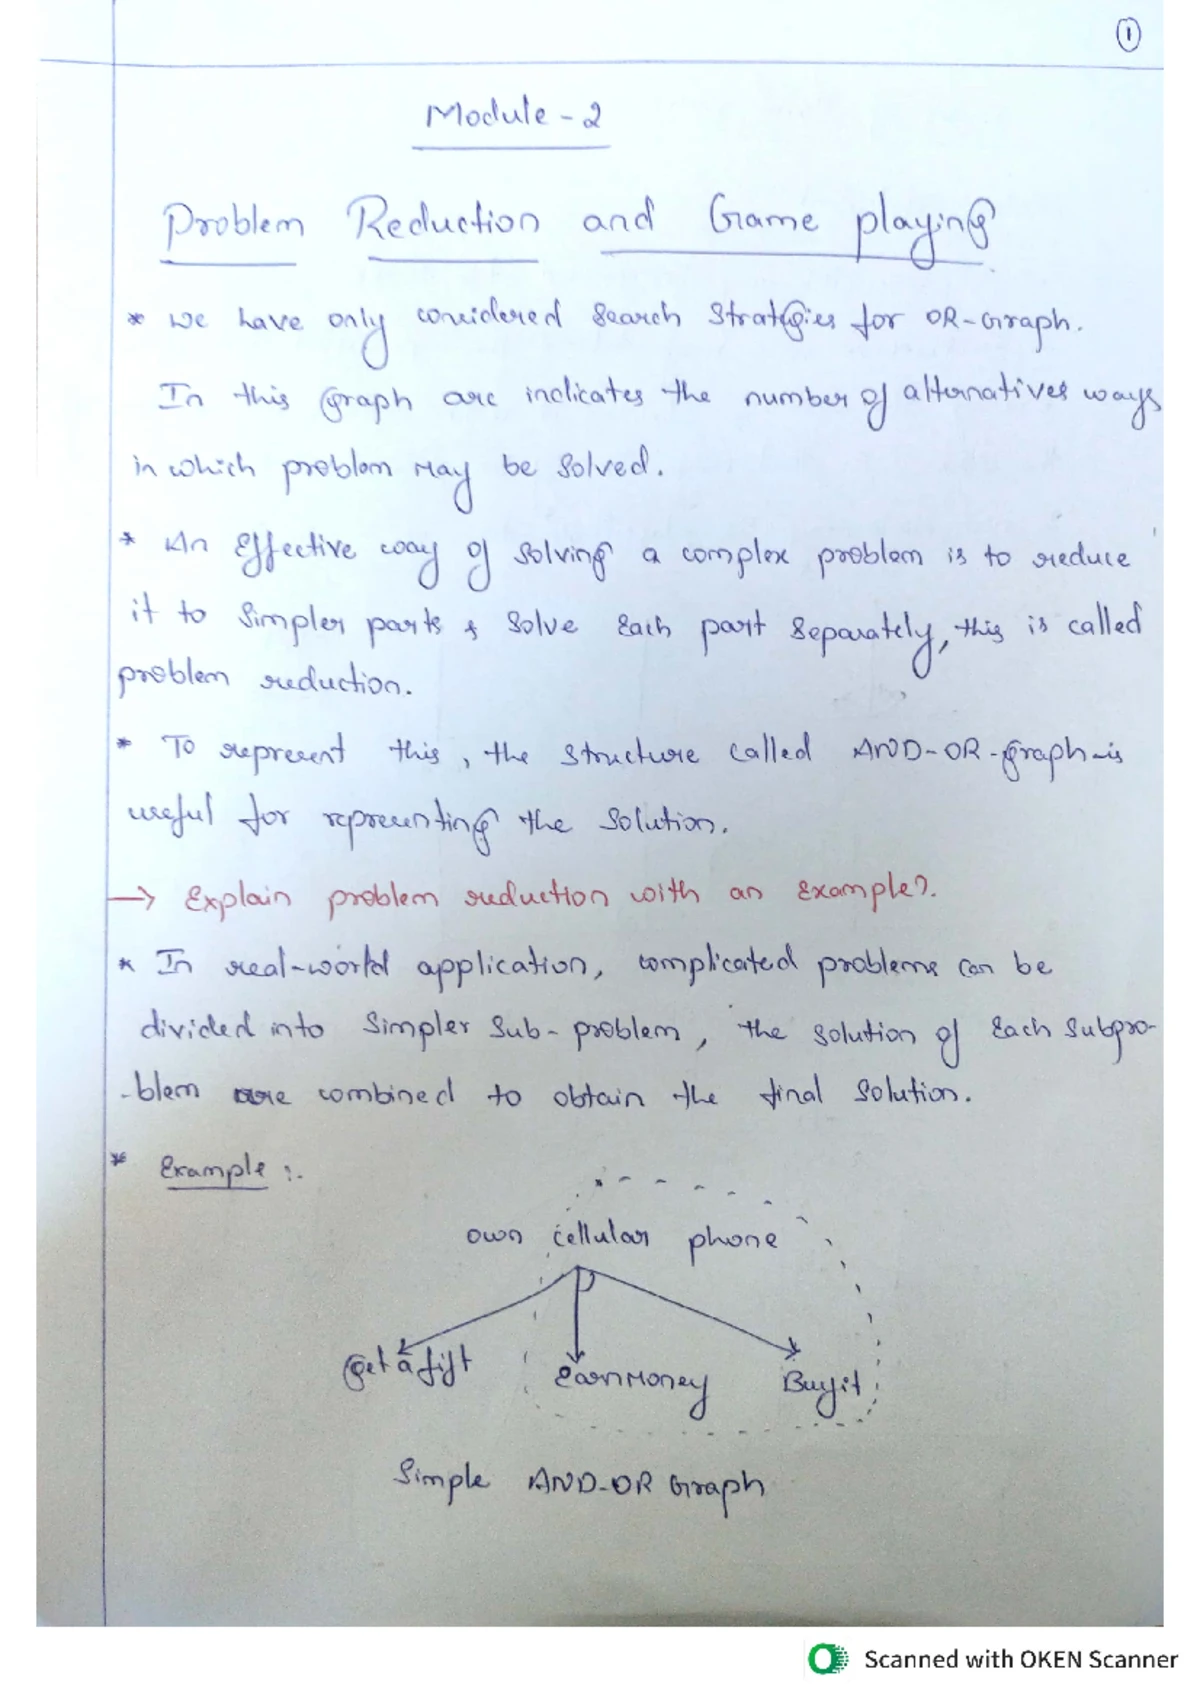 1
Module - 2
Problem Reduction and Game playing
* we have only considered search strategies for OR-Graph.
In this graph arc indicates the number of alternatives ways
in which problem may be solved.
* An Effective way of solving a complex problem is to reduce
it to simpler parts & solve each part separately, this is called
problem reduction.
* To represent this, the structure called AND-OR-graph is
useful for representing the solution.
→ Explain problem reduction with an example?.
* In real-world application, complicated problems can be
divided into simpler sub-problem, the solution of each subpro-
-blem are combined to obtain the final solution.
* Example :.
own cellular phone
Get a gift
Earn Money
Buy it
Simple AND-OR Graph
Scanned with OKEN Scanner